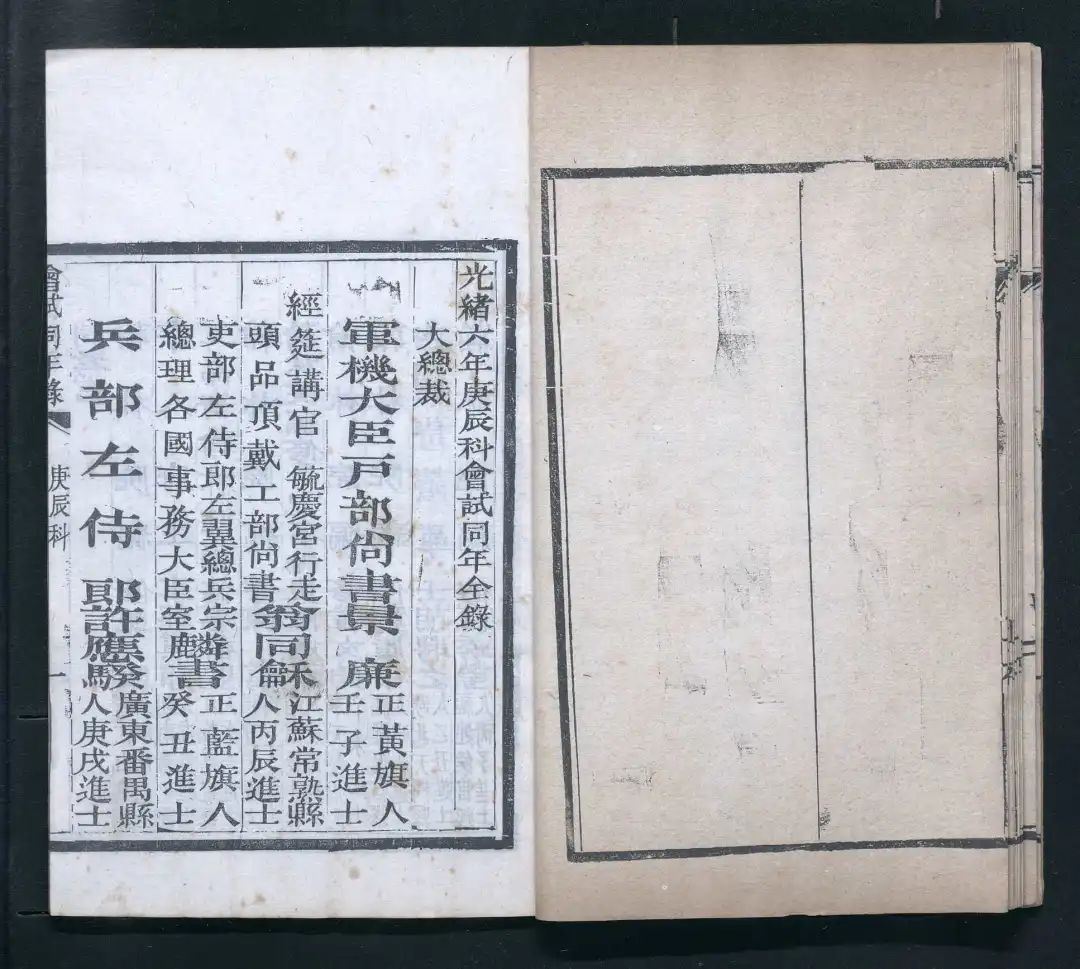 光緒六年庚辰科會試同年全錄
大總裁
軍機大臣戶部尚書景廉正黃旗人
壬子進士
經筵講官毓慶宮行走
頭品頂戴工部尚書翁同龢江蘇常熟縣
人丙辰進士
吏部左侍郎左翼總兵宗
總理各國事務大臣室麟書正藍旗人
癸丑進士
兵部左侍郎許應騤廣東番禺縣
人庚戌進士
會試同年錄 庚辰科 一